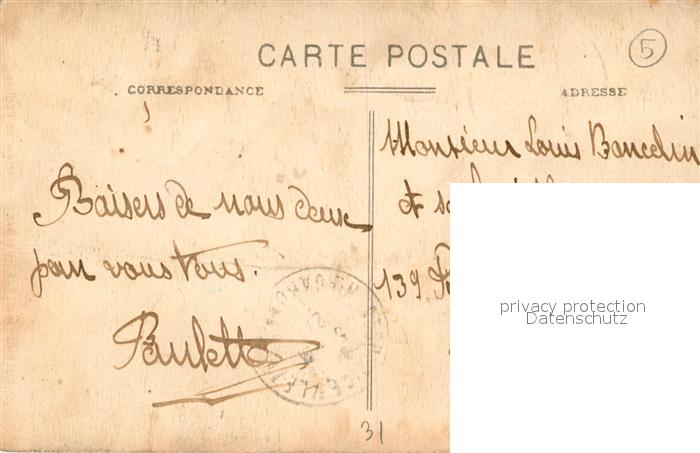 CARTE POSTALE
5
CORRESPONDANCE
ADRESSE
Baisers de nous deux
pour vous tous.
Paulette
Monsieur Louis Bancelin
et
139
31
privacy protection
Datenschutz